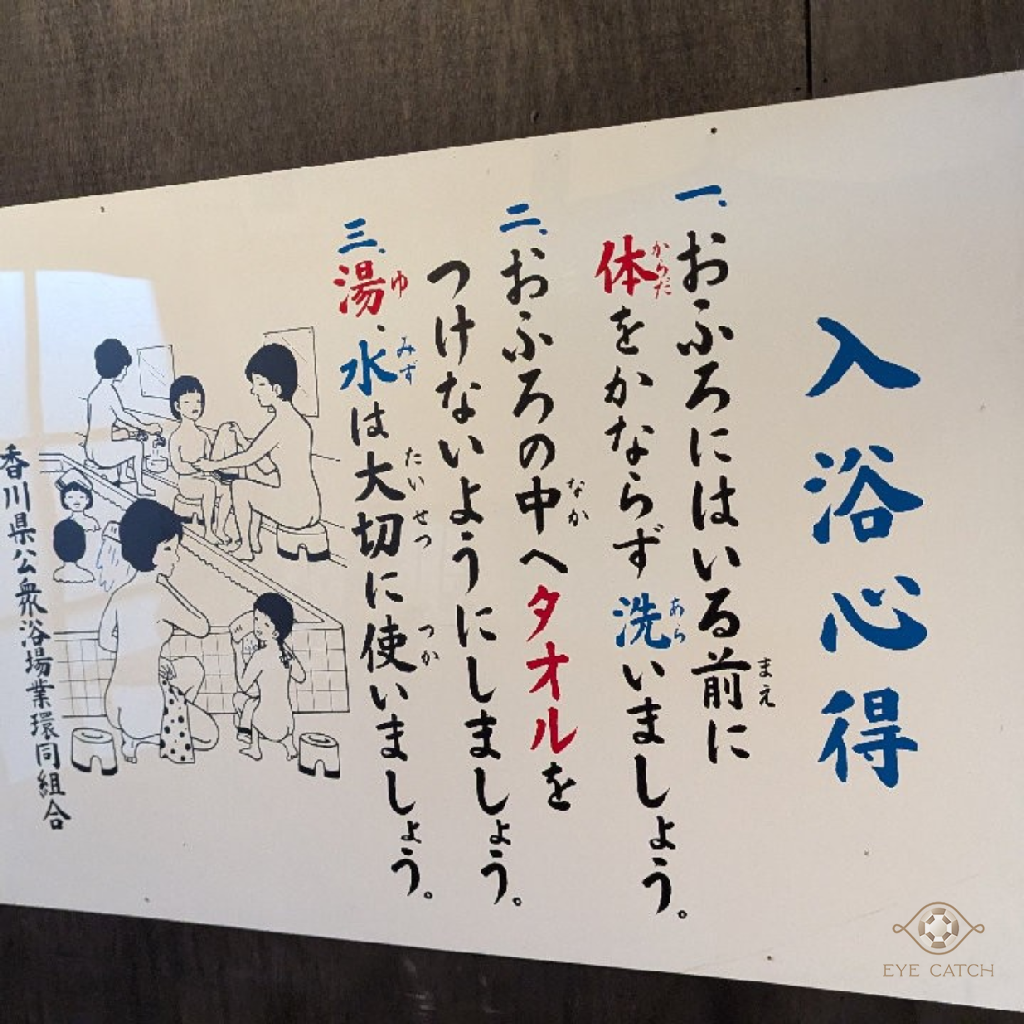 入浴心得
一、おふろにはいる前に
体をかならず洗いましょう。
二、おふろの中へタオルを
つけないようにしましょう。
三、湯、水は大切に使いましょう。
香川県公衆浴場業環同組合
まえ
からだ
あら
なか
ゆ
みず
たいせつ
つか
EYE CATCH